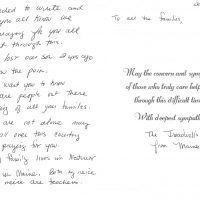 ded to write and
you all know we
praying for you all
t through this.
lost our son 2 yrs ago
the pain.
want you to know
are people out there
of all you families.
are not alone many
all over this country
praying for you.
family lives in
Maine. Both my niece
niece are teachers.
To all the families,
May the concern and symp
of those who truly care help
through this difficult time
With deepest sympath
The
from Maine